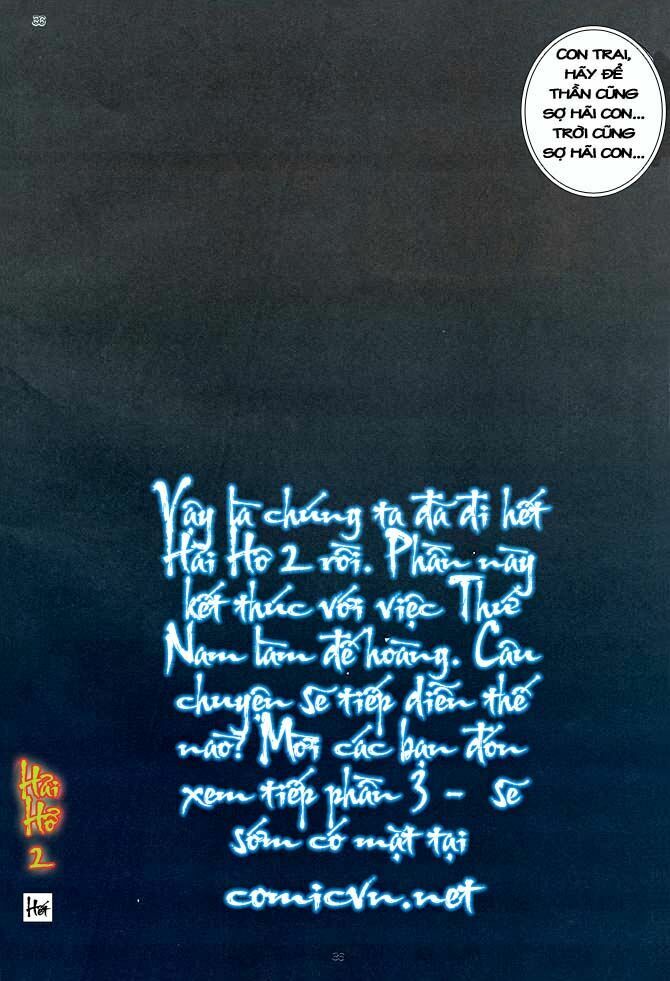 36
CON TRAI,
HÃY ĐỂ
THẦN CŨNG
SỢ HÃI CON...
TRỜI CŨNG
SỢ HÃI CON...
Vậy là chúng ta đã đi hết
Hải Hổ 2 rồi. Phần này
kết thúc với việc Thư
Nam làm đế hoàng. Câu
chuyện sẽ tiếp diễn thế
nào? Mời các bạn đón
xem tiếp phần 3 - sẽ
sớm có mặt tại
comicvn.net
Hải
Hổ
2
Hết
36